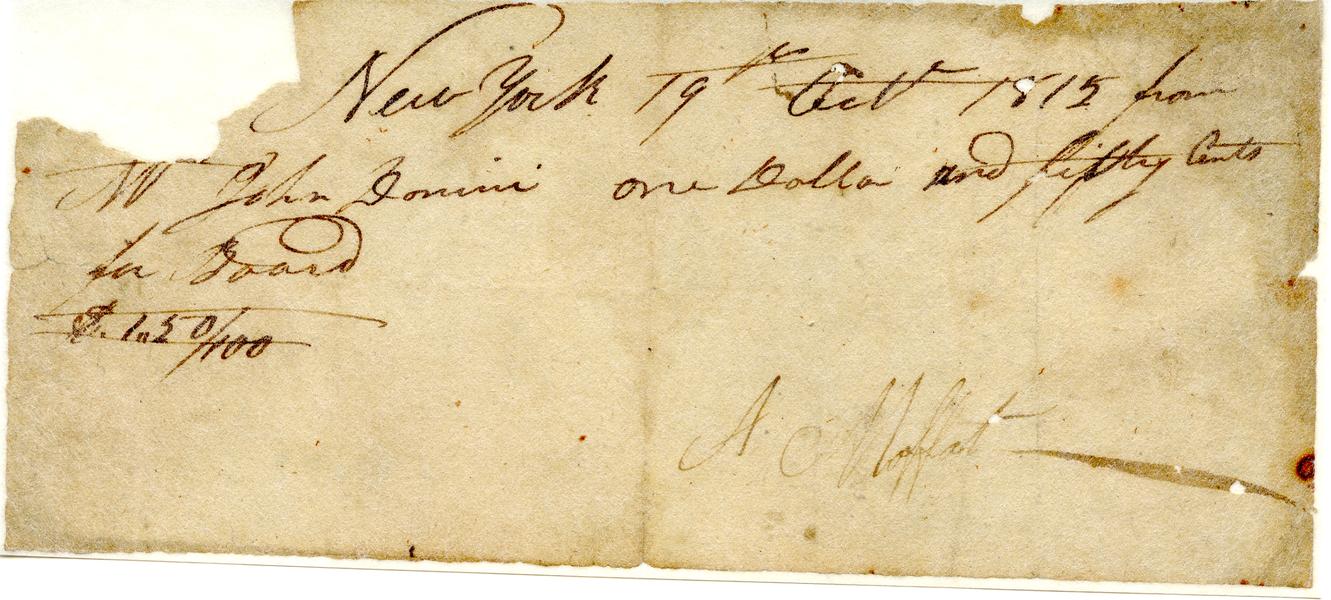 New York 19th Octr 1812 from
Mr John Domini one Dollar and fifty Cents
for Board
$. 1.50/100
A Moffat